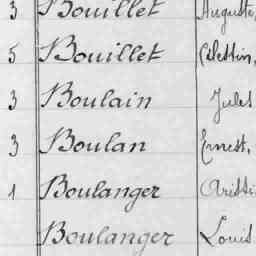 3 Bouillet Auguste,
5 Bouillet Célestin,
3 Boulain Jules
3 Boulan Ernest,
1 Boulanger Aristi
Boulanger Louis